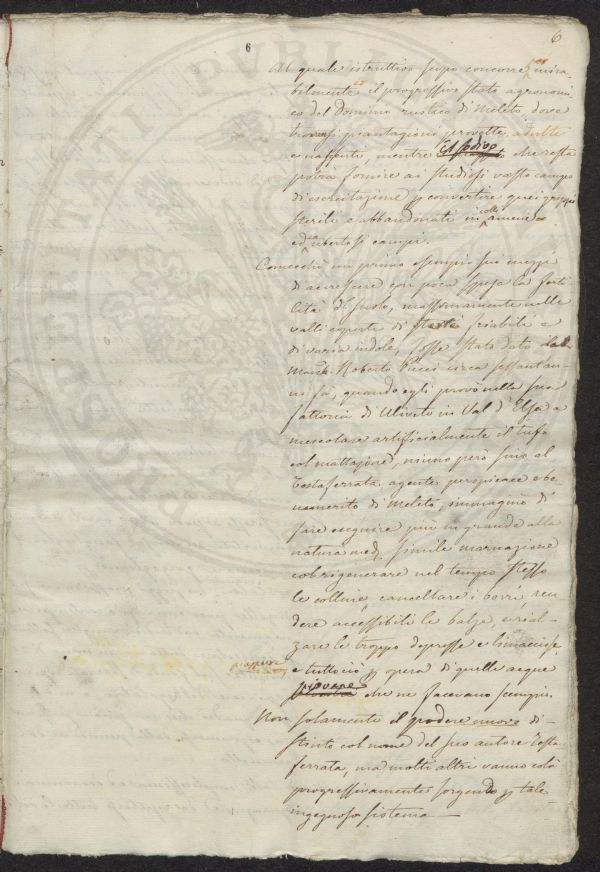 6
6
Al quale istruttivo scopo concorre mira-
bilmente il progressivo stato agronomi-
co del Dominio rustico di Meleto dove
trovansi piantagioni provette, adulte
e nascenti, mentre il sodivo che resta
potrà fornire ai studiosi vasto campo
di esercitazione p convertire quei greppi
sterili e abbandonati in colli amene
ed ubertosi campi.
Comecchè un primo esempio sui mezzi
di accrescere con poca spesa la ferti-
lità del suolo, massimamente nelle
valli coperte di terre friabili e
di varia indole, fosse stato dato dal
March. Roberto Pucci circa sessant'an-
ni fà, quando egli provò nella sua
fattoria di Uliveto in Val d'Elsa a
mescolare artificialmente il tufo
col mattajone, niuno però pria al
Testaferrata, agente perspicace e be-
nemerito di Meleto, immaginò di
fare eseguire più in grande alla
natura med. simile marnazione
col rigenerare nel tempo stesso
le colline, cancellare i borri, ren-
dere accessibili le balze, e rial-
zare le troppo depresse e limacciose
piovane
e tuttociò p opera di quelle acque
piovane che ne facevano scempio.
Non solamente il podere nuovo di-
stinto col nome del suo autore Testa-
ferrata, ma molti altri vanno colà
progressivamente sorgendo p tale
ingegnoso sistema